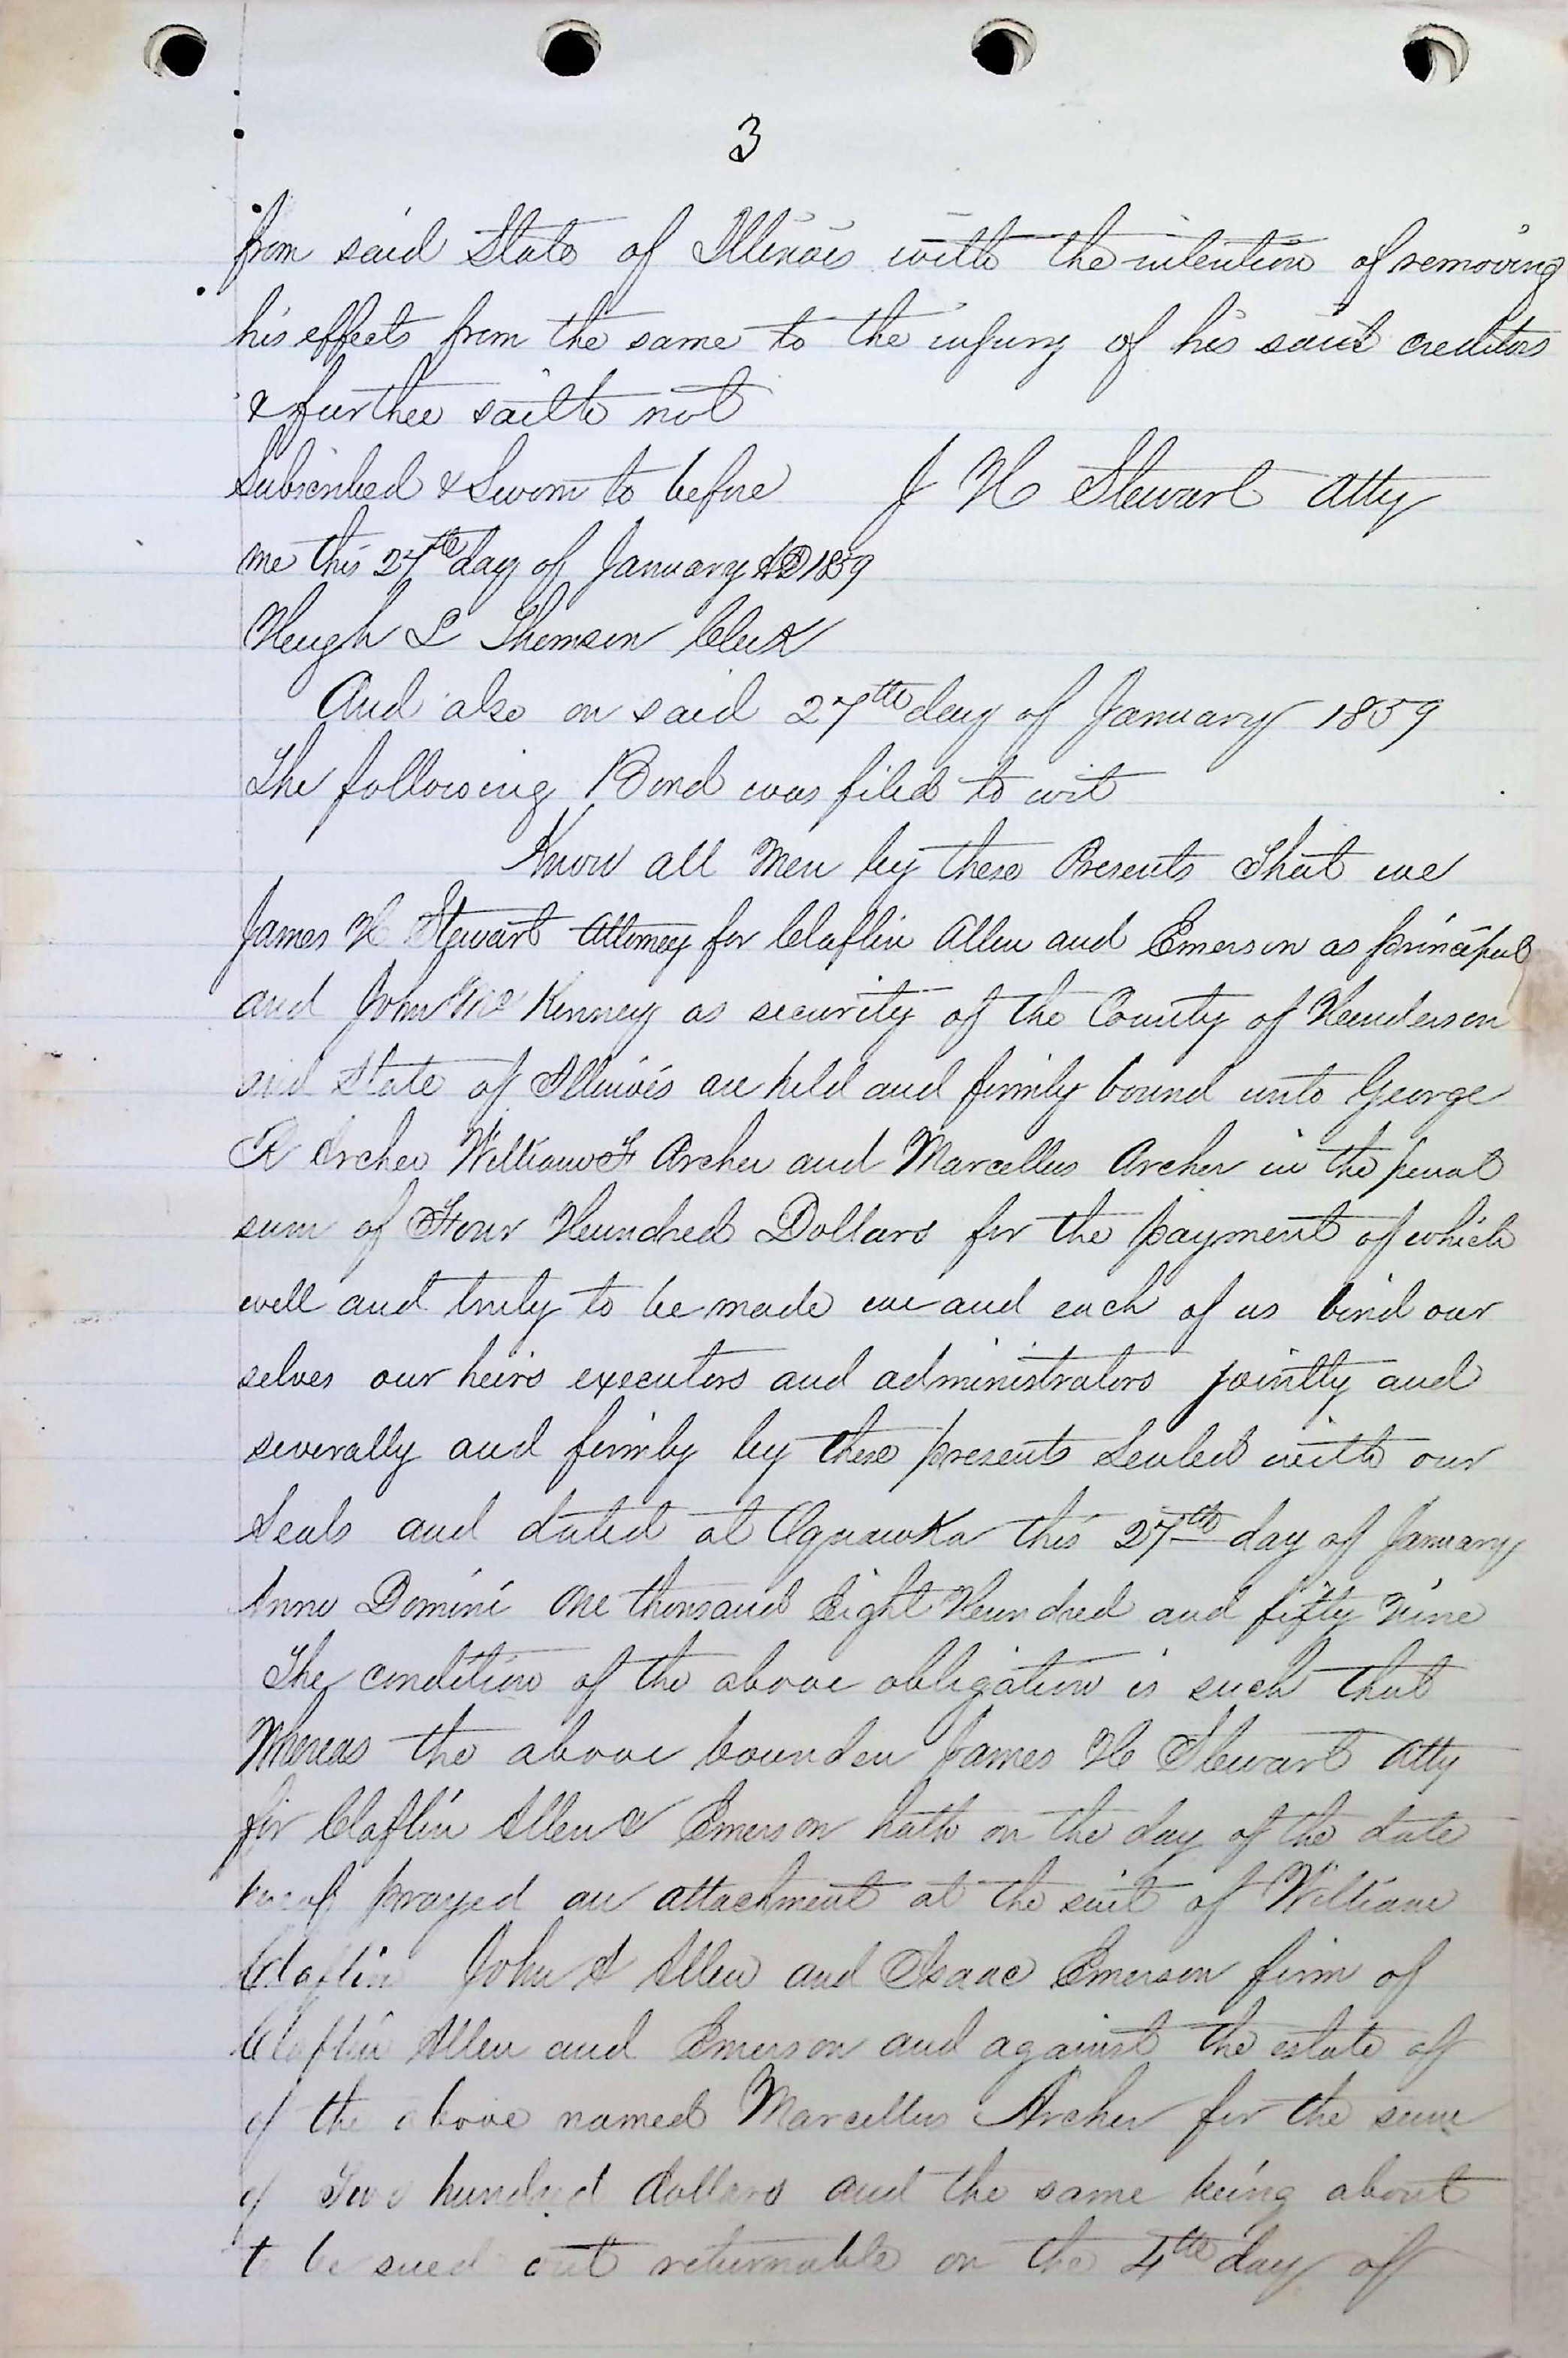 3
from said State of Illinois with the intention of removing
his effects from the same to the injury of his said creditors
& further saith not
Subscribed & Sworn to before J H Stewart Atty
me this 27th day of January AD 1859
Hugh L Thomson Clerk
And also on said 27th day of January 1859
The following Bond was filed to wit
Know all Men by these Presents That we
James H Stewart Attorney for Claflin Allen and Emerson as principal
and John McKenney as security of the County of Henderson
and State of Illinois are held and firmly bound unto George
R Archer William F Archer and Marcellus Archer in the penal
sum of Four Hundred Dollars for the payment of which
well and truly to be made we and each of us bind our
selves our heirs executors and administrators jointly and
severally and firmly by these presents Sealed with our
Seals and dated at Oquawka this 27th day of January
Anno Domini One thousand Eight Hundred and fifty Nine
The condition of the above obligation is such that
Whereas the above bounden James H Stewart Atty
for Claflin Allen & Emerson hath on the day of the date
hereof prayed an attachment at the suit of William
Claflin John A Allen and Isaac Emerson firm of
Claflin Allen and Emerson and against the estate of
of the above named Marcellus Archer for the sum
of Two hundred dollars and the same being about
to be sued out returnable on the 4th day of